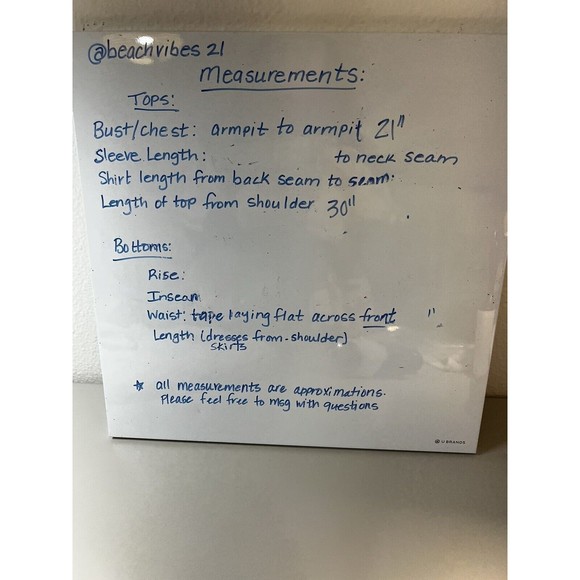 @beachvibes 21
Measurements:
TOPS:
Bust/chest: armpit to armpit 21"
Sleeve Length: to neck seam
Shirt length from back seam to seam:
Length of top from shoulder 30"
Bottoms:
Rise:
Inseam
Waist: tape laying flat across front "
Length (dresses from-shoulder)
skirts
* all measurements are approximations.
Please feel free to msg with questions
U BRANDS